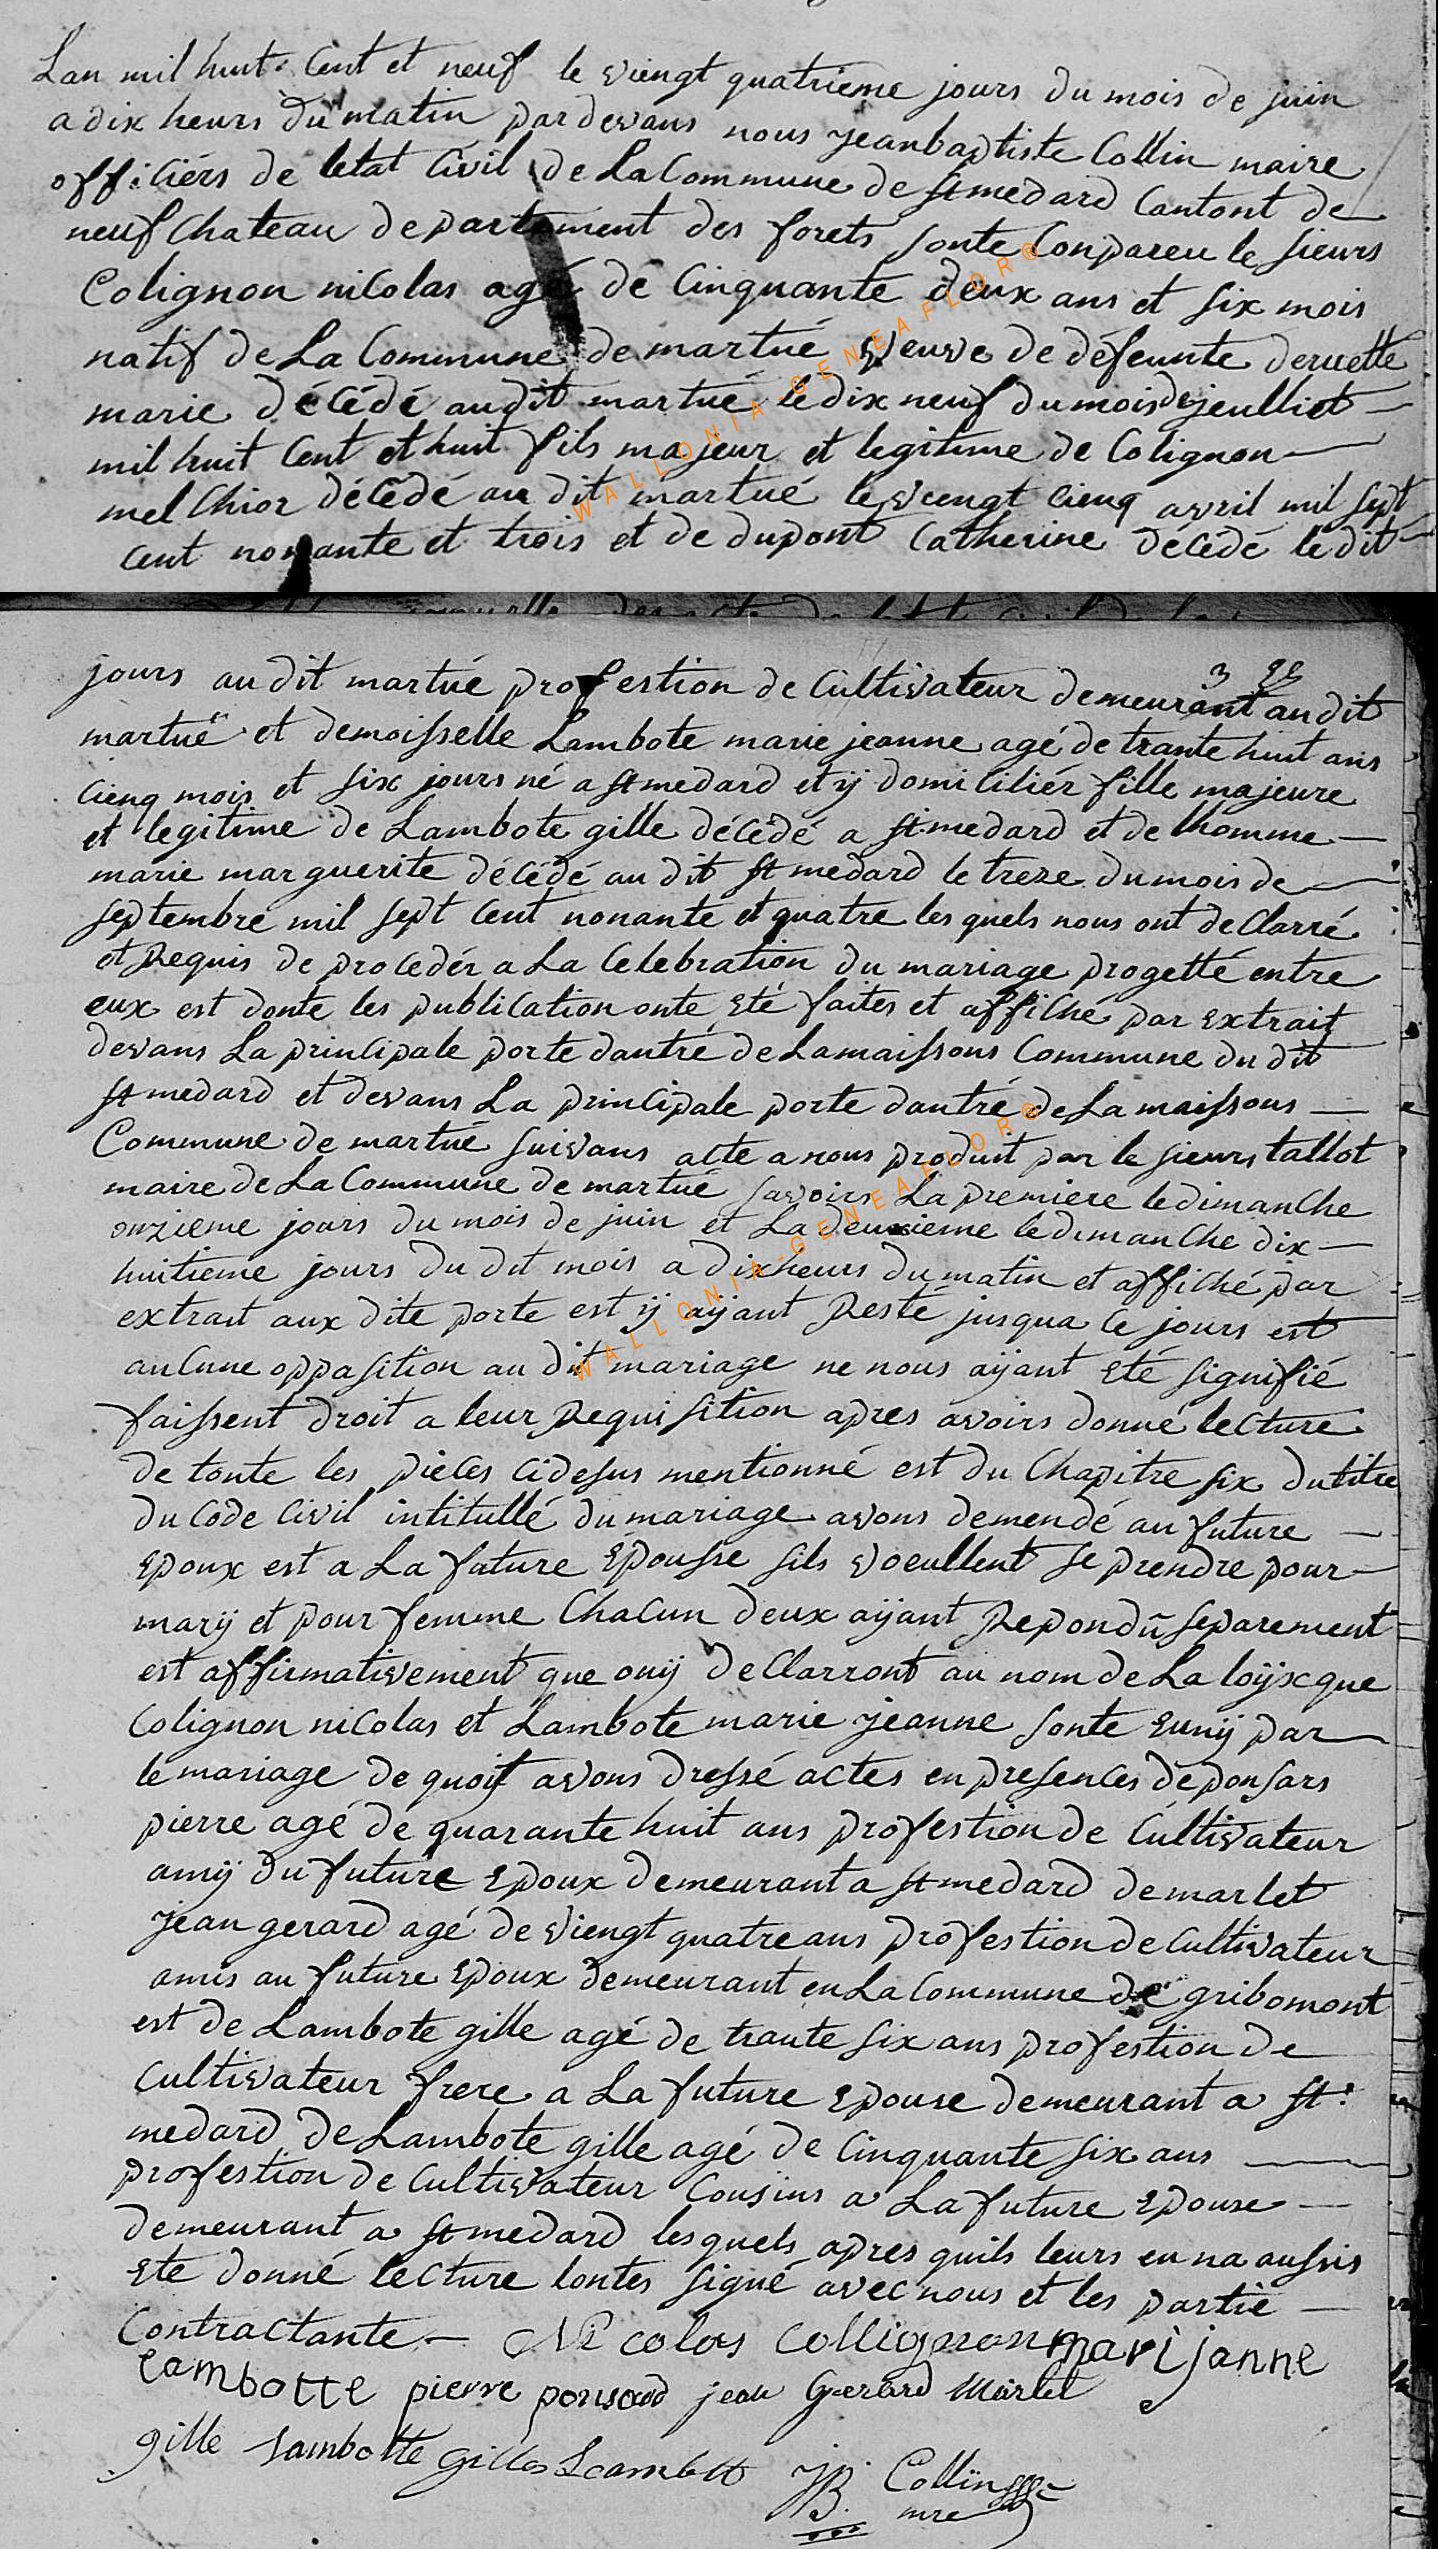 Lan mil huit Cent et neuf le viengt quatrieme jours du mois de juin
a dix heurs du matin par devans nous jean baptiste Collin maire
officiérs de letat Civil de La Commune de St medard Cantont de
neufChateau departement des forets sonte Conpareu le sieurs
Colignon nicolas agé de Cinquante deux ans et six mois
natif de La Commune de martué veuve de défeunte deruette
marie décédé au dit martué le dix neuf du mois de jeulliet
mil huit Cent et huit fils majeur et legitime de Colignon
melChior décédé au dit martué le viengt cienq avril mil sept
cent nonante et trois et de dupont Catherine décédé le dit
3
jours au dit martué profestion de Cultivateur demeurant au dit
martué et demoisselle Lambote marie jeanne agé de trante huit ans
cienq mois et six jours né a St medard et ij domiciliér fille majeure
et legitime de Lambote gille décédé a St medard et de lhomme
marie marguerite décédé au dit St medard le treze du mois de
septembre mil sept Cent nonante et quatre les quels nous ont deClarré
et Requis de procedér a La Celebration du mariage progetté entre
eux est donte les publication onte eté faites et affiché par extrait
devans La principale porte dantré de La maissons Commune du dit
St medard et devans La principale porte dantré de La maissons
Commune de martué suivans acte a nous produit par le sieurs tallot
maire de La Commune de martué savoirs La premiere le dimanche
onzieme jours du mois de juin et La deuxieme le dimanche dix
huitieme jours du dit mois a dix heurs du matin et affiché par
extrait aux dite porte est ij aijant Resté jusqua ce jours est
auCune oppasition au dit mariage ne nous aijant eté signifié
faissent droit a leur Requisition apres avoirs donné lecture
de toute les pieces cidesus mentionné est du Chapitre six du titre
du Code Civil intitullé du mariage avons demendé au future
epoux est a La future epousse sils voeullent se prendre pour
marij et pour femme Chacun deux aijant Repondu separement
est affirmativement que ouij deClarront au nom de La loijx que
Colignon nicolas et Lambote marie jeanne sonte eunij par
le mariage de quoit avons dressé actes en presences de ponsars
pierre agé de quarante huit ans profestion de Cultivateur
amij du future epoux demeurant a St medard de marlet
jean gerard agé de viengt quatre ans profestion de Cultivateur
amis au future epoux demeurant en La Commune de gribomont
est de Lambote gille agé de trante six ans profestion de
Cultivateur frere a La future epouse demeurant a St
medard de Lambote gille agé de Cinquante six ans
profestion de Cultivateur Cousins a La future epouse
demeurant a St medard lesquels apres quils leurs en na aussis
ete donné lecture lontes signé avec nous et les partie
Contractante Nicolas Collignon marijanne
Lambotte pierre ponsard jean Gerard Marlet
gille Lambotte Gilles Lambott JB Collin
mre
WALLONIA-GENEAFLOR®
WALLONIA-GENEAFLOR®